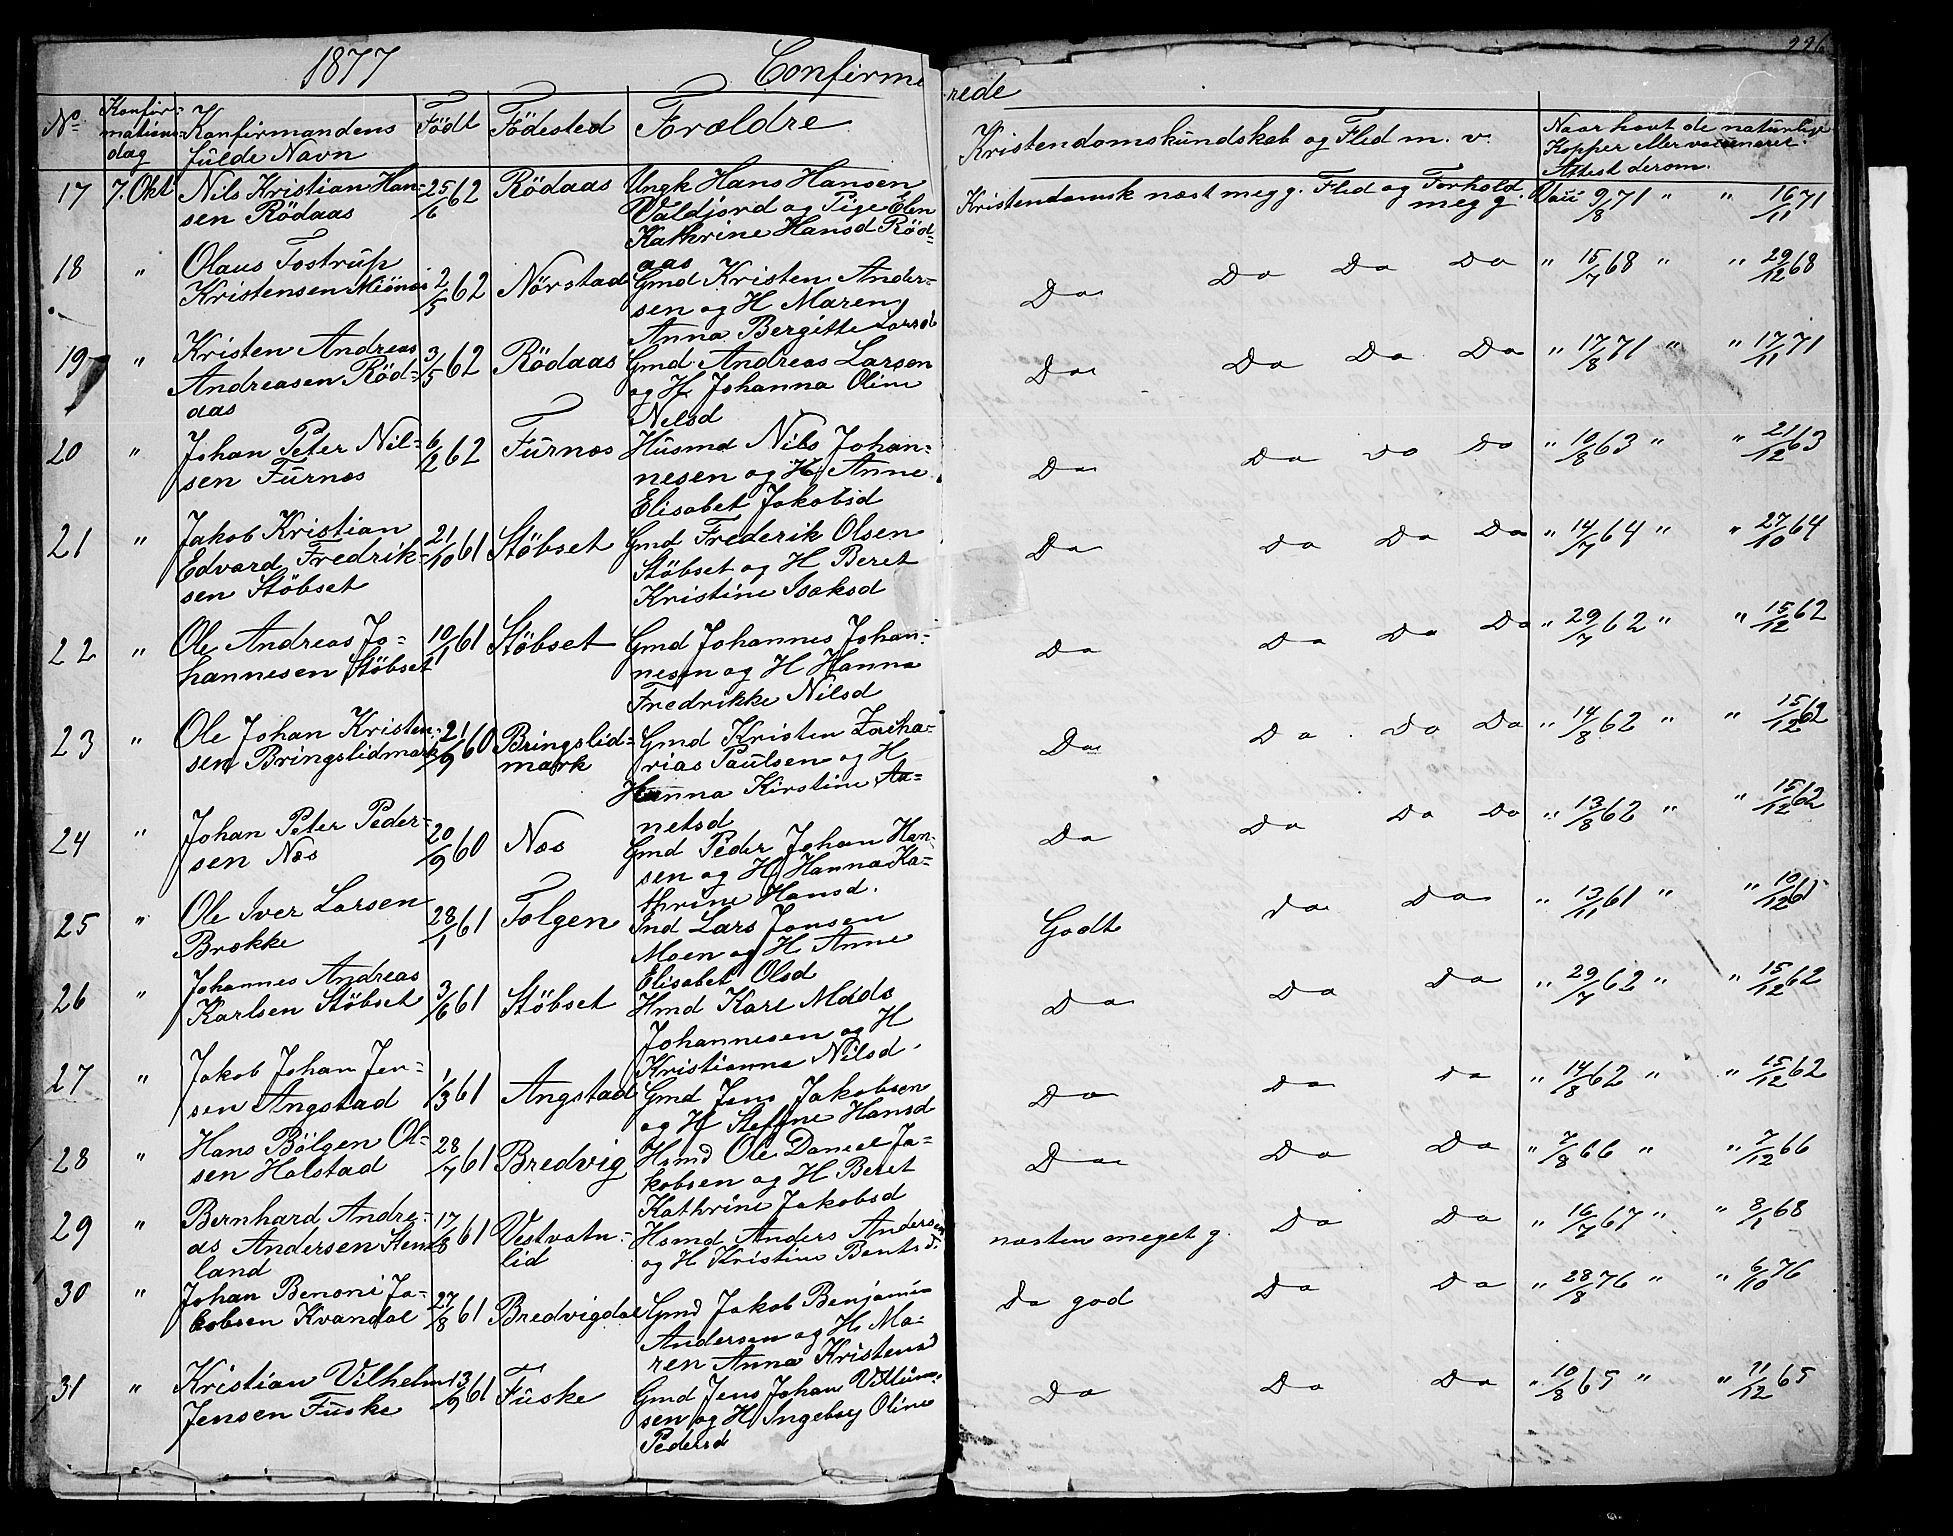 1877 Confirme
rede 226
No Konfir- mations- dag Konfirmandens fulde Navn Födt Födested Forældre Kristendomskundskab og Flid m. v. Naar havt de naturlige Kopper eller vaccineret. Attest derom.
17 7. Okt Nils Kristian Han- 25/6 62 Rödaas Ungk Hans Hansen Kristendomsk næst meg g. Flid og Forhold Vac 9/8 71 " " 16/11 71
sen Rödaas Valdjord og Pige Elen meg g.
Kathrine Hansd Röd-
aas
18 " Olaus Tostrup 2/5 62 Nörstad Gmd Kristen Ander- Do Do Do Do " 15/7 68 " " 29/12 68
Kristensen sen og H Maren
Anna Bergitte Larsd
19 " Kristen Andreas 3/5 62 Rödaas Gmd Andreas Larsen Do Do Do Do " 17/8 71 " " 17/11 71
Andreasen Röd- og H Johanna Oline
aas Nelsd
20 " Johan Peter Nil- 6/2 62 Furnes Husmd Nils Johan- Do Do Do Do " 10/8 63 " " 21/12 63
sen Furnes nesen og H Anne
Elisabet Jakobsd
21 " Jakob Kristian 21/10 61 Stöbset Gmd Frederik Olsen Do Do Do Do " 14/7 64 " " 27/10 64
Edvard Fredrik- Stöbset og H Beret
sen Stöbset Kristine Isaksd
22 " Ole Andreas Jo- 10/1 61 Stöbset Gmd Johannes Johan- Do Do Do Do " 29/7 62 " " 15/12 62
hannesen Stöbset nesen og H Hanna
Fredrikke Nilsd
23 " Ole Johan Kristen- 21/9 60 Bringslid- Gmd Kristen Zacha- Do Do Do Do " 14/8 62 " " 15/12 62
sen Bringslidmark mark rias Paulsen og H
Hanna Kirstine Aa-
netsd
24 " Johan Peter Peder- 20/9 60 Nes Gmd Peder Johan Han- Do Do Do Do " 13/8 62 " " 15/12 62
sen Nes sen og H Hanna Ka-
thrine Hansd.
25 " Ole Iver Larsen 28/1 61 Folgen Ind Lars Jonsen Godt do Do " 13/11 61 " " 10/12 61
Brække Moen og H Anne
Elisabet Olsd
26 " Johannes Andreas 3/6 61 Stöbset Hmd Karl Mads Do Do Do " 29/7 62 " " 15/12 62
Karlsen Stöbset Johannesen og H
Kristianna Nilsd.
27 " Jakob Johan Jen- 1/3 61 Angstad Gmd Jens Jakobsen Do Do Do " 14/8 62 " " 15/12 62
sen Angstad og H Steffine Hansd
28 " Hans Bölgen Ol- 28/7 61 Bredvig Hsmd Ole Daneel Ja- Do Do Do " 7/8 66 " " 7/12 66
sen Halstad kobsen og H Beret
Kathrine Jakobsd
29 " Bernhard Andre- 17/8 61 Vestvatn- Hsmd Anders Andersen næsten meget g. Do Do " 16/7 67 " " 8/1 68
as Andersen Sten- lid og H Kristine Bentsd.
land
30 " Johan Benoni Ja- 27/8 61 Bredvigdal Gmd Jakob Benjamin Do god Do Do " 28/8 76 " " 6/10 76
kobsen Kvandal Andersen og H Ma-
ren Anna Kristensd
31 " Kristian Vilhelm 13/9 61 Fuske Gmd Jens Johan Villum- Do Do Do " 10/8 65 " " 11/12 65
Jensen Fuske sen og H Ingeborg Oline
Pedersd